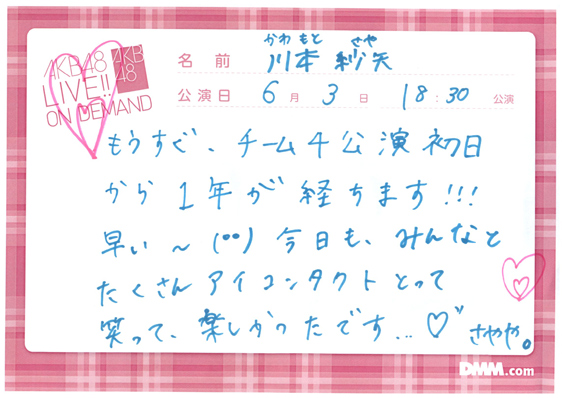 AKB48
LIVE!!
ON DEMAND
AKB
48
かわ もと さや
名前 川本 紗矢
公演日 6月 3日 18:30 公演
もうすぐ、チーム4公演初日
から1年が経ちます!!!
早い〜(••)今日も、みんなと
たくさんアイコンタクトとって
笑って、楽しかったです...♡゛
さやや。
DMM.com